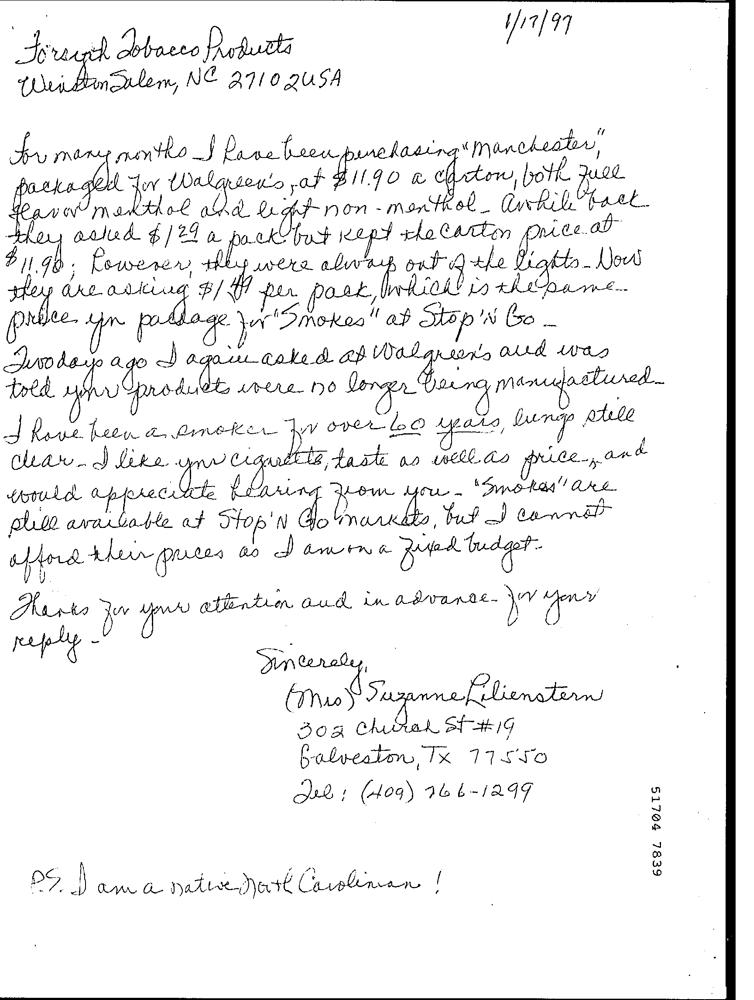 1/17/97
Forsyth Tobacco Products
Winston Salem, NC 27102 USA
For many months I have been purchasing "Manchester,"
packaged for Walgreen's, at $11.90 a carton, both full
flavor menthol and light non-menthol - Awhile back
they asked $1 29 a pack but kept the carton price at
$11.90; however, they were always out of the lights - Now
they are asking $1 per pack, which is the same
price yr package for "Smokes" at Stop 'N Go -
Two days ago I again asked at Walgreen's and was
told your products were no longer being manufactured -
I have been a smoker for over 60 years, lungs still
clear - I like your cigarette, taste as well as price, and
would appreciate hearing from you - "Smokes" are
still available at Stop 'N Go markets, but I cannot
afford their prices as I am on a fixed budget -
Thanks for your attention and in advance - for your
reply -
Sincerely,
(Mrs) Suzanne Lilienstern
302 Church St #19
Galveston, Tx 77550
Tel: (409) 766-1299
51704 7839
P.S. I am a native North Carolinian!